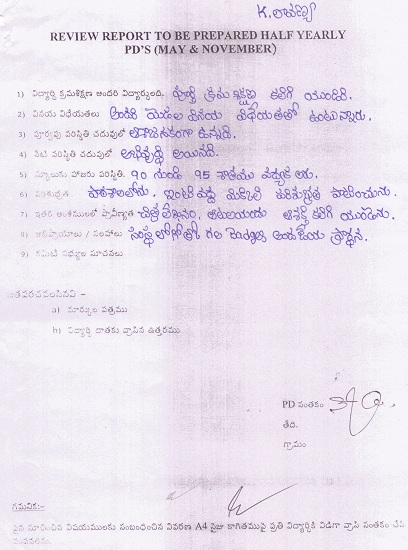 K. లావణ్య
REVIEW REPORT TO BE PREPARED HALF YEARLY
PD'S (MAY & NOVEMBER)
1) విద్యార్థి క్రమశిక్షణ అందరి విద్యార్థులది. పూర్తి క్రమశిక్షణ కలిగి యుండిరి.
2) వినయ విధేయతలు అందరి యెడల వినయ విధేయతతో ఉంటున్నారు.
3) పూర్వపు పరిస్థితి చదువులో ఆశాజనకంగా ఉన్నది.
4) నేటి పరిస్థితి చదువులో అభివృద్ధి అయినది.
5) స్కూలుకు హాజరు పరిస్థితి. 90 నుండి 95 శాతము
6) పరిశుభ్రత పాఠశాలలోను, ఇంటివద్ద మిక్కిలి పరిశుభ్రత పాటించును.
7) ఇతర అంశములలో ప్రావీణ్యత చిత్రలేఖనం, ఆటలయందు ఆసక్తి కలిగి యుండెను.
8) అభిప్రాయాలు / సలహాలు సంస్థ లోగోతో గల Badges అందజేయ ప్రార్థన.
9) కమిటి సభ్యుల సూచనలు
జతపరచవలసినవి -
a) మార్కుల పత్రము
b) విద్యార్థి దాతకు వ్రాసిన ఉత్తరము
PD సంతకం
తేది.
గ్రామం
గమనిక:-
పైన సూచించిన విషయములకు సంబంధించిన వివరణ A4 సైజు కాగితముపై ప్రతి విద్యార్థికి విడిగా వ్రాసి సంతకం చేసి